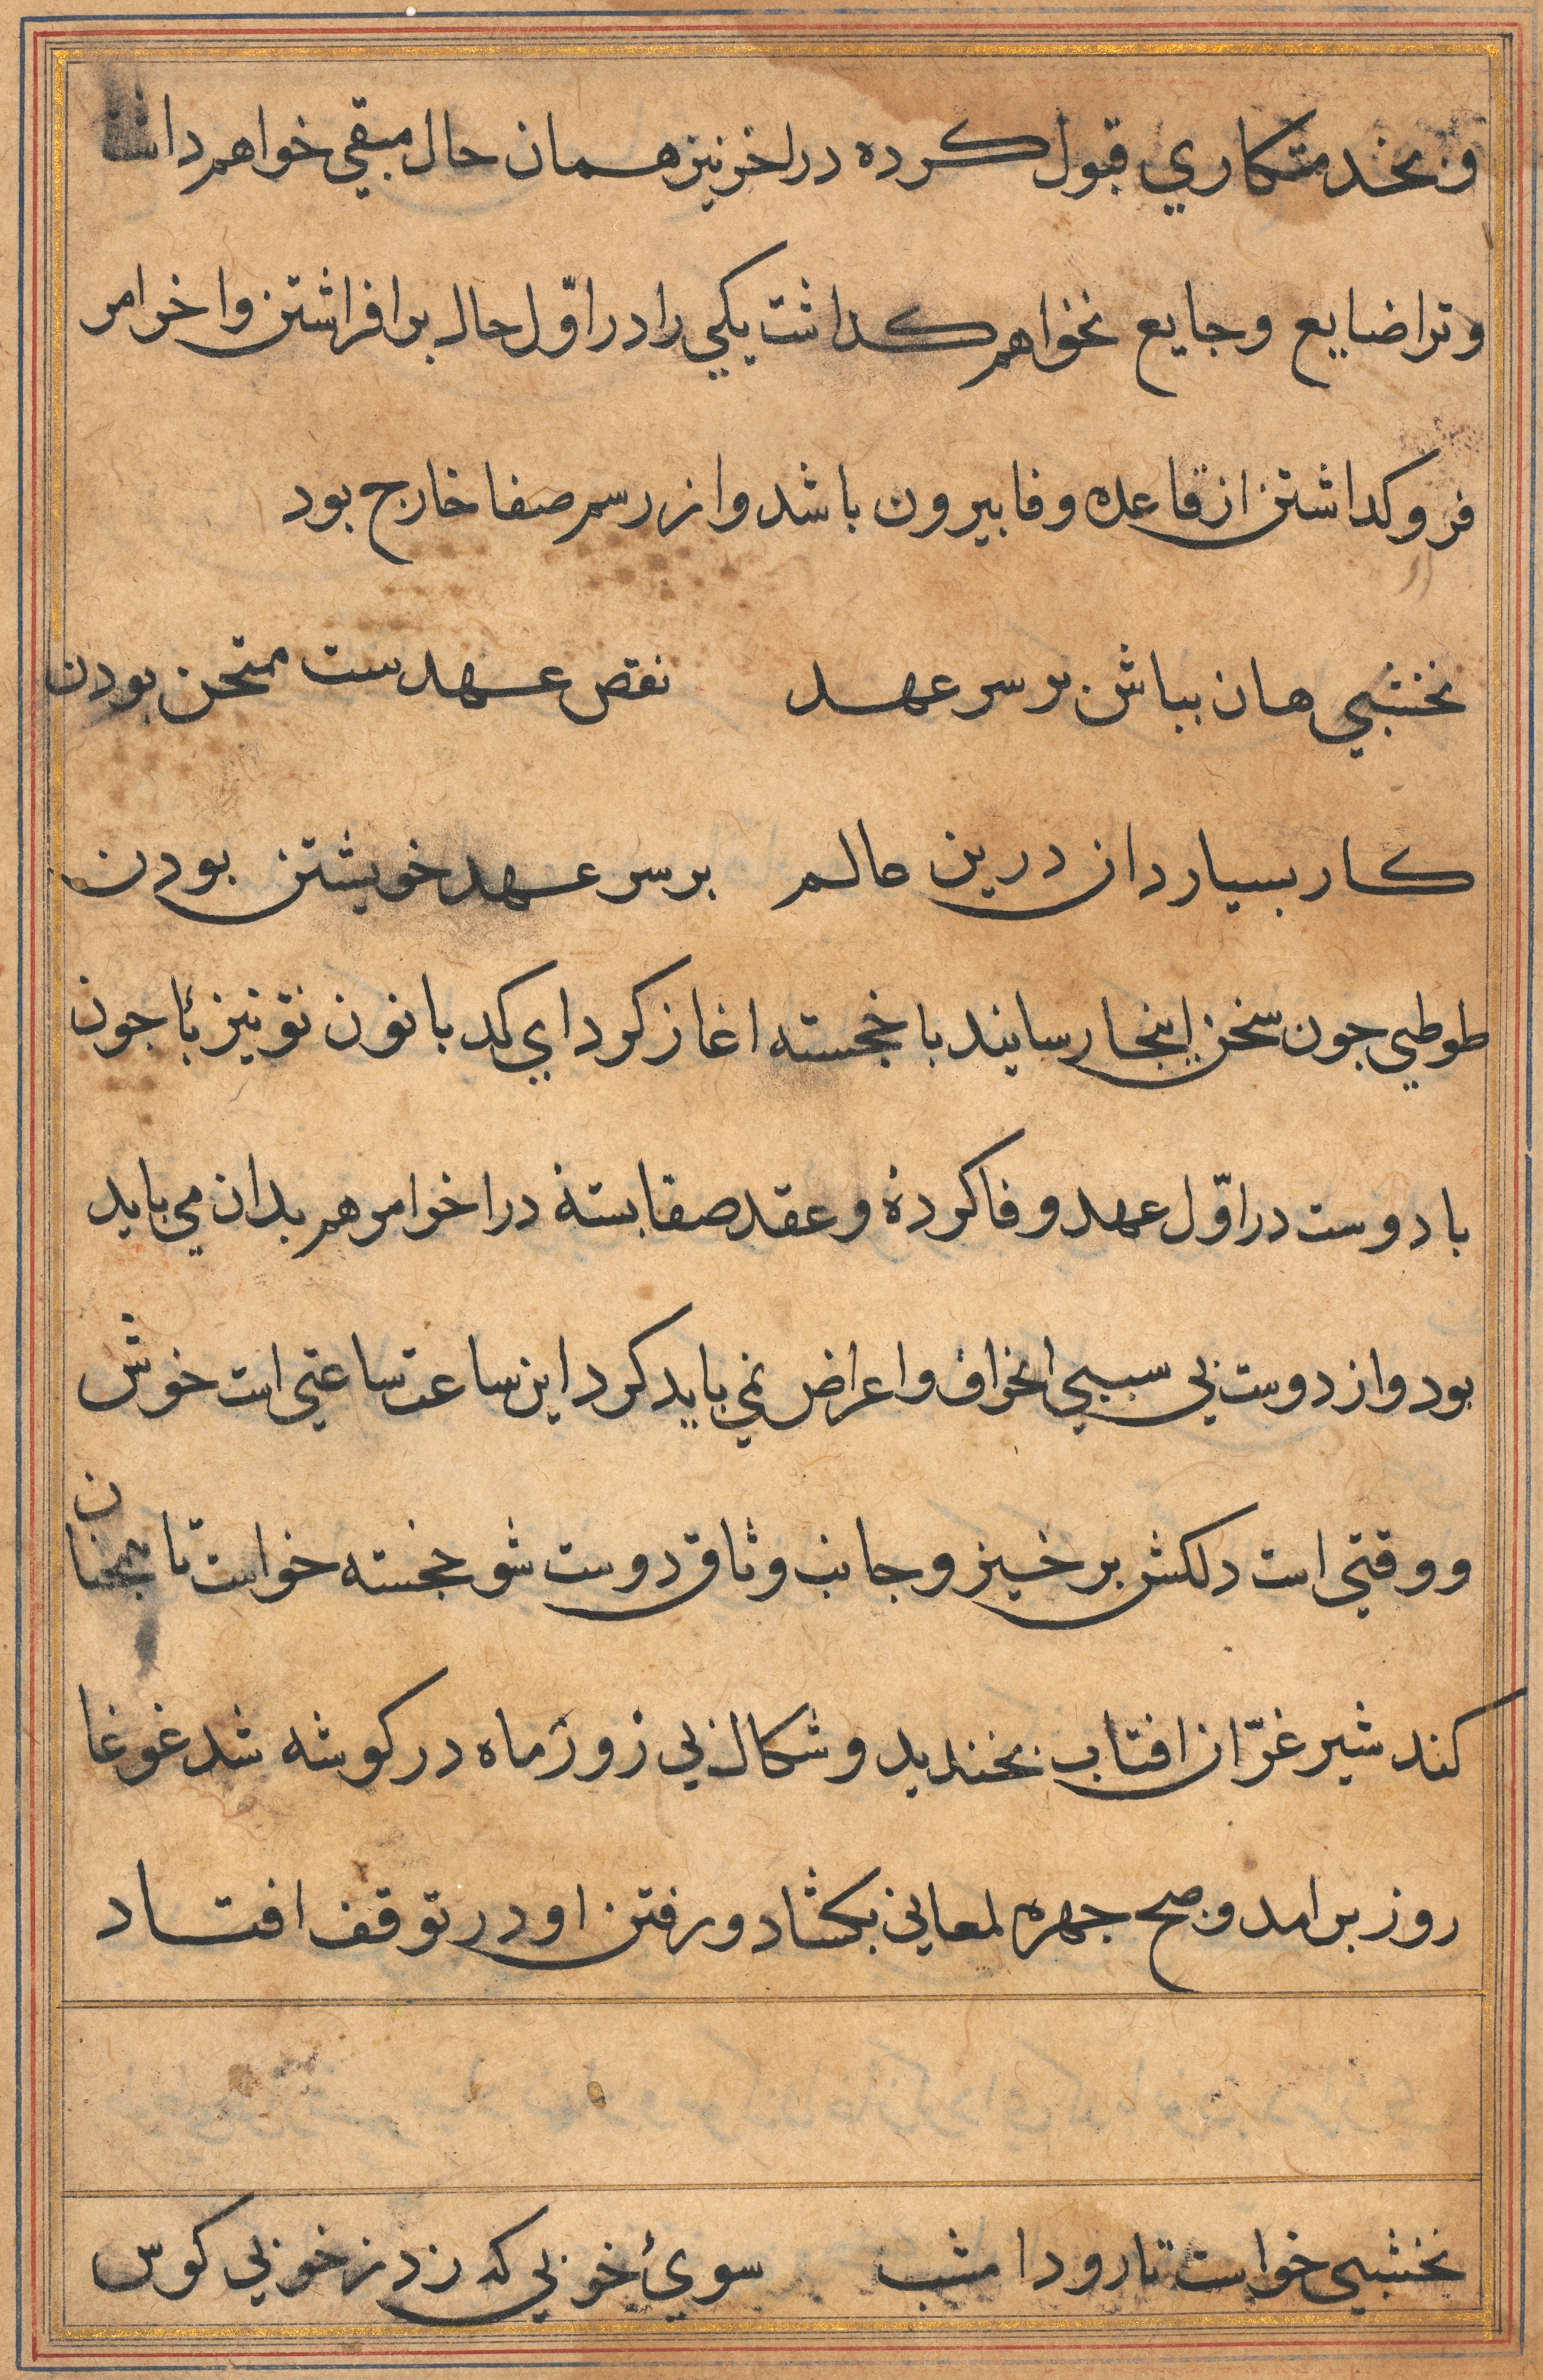 و بخدمتكاري قبول كرده در اخر نيز همان حال مبقي خواهم داشت
و ترا ضايع وجايع نخواهم كداشت يكي را در اوّل حال بر افراشتن و اخر امر
فرو كداشتن از قاعده وفا بيرون باشد و از رسم صفا خارج بود
نخشبي هان بباش بر سر عهد نقص عهدست ممتحن بودن
كار بسيار دان درين عالم بر سر عهد خويشتن بودن
طوطي جون سخن اينجا رسانيد با خجسته اغاز كرد اي كدبانو ن تو نيز با جون
با دوست در اوّل عهد وفا كردهٔ و عقد صفا بستهٔ در اخر امر هم بدان مي بايد
بود و از دوست بي سببي انحراف و اعراض نمي بايد كرد اين ساعت ساعتي است خوش
و وقتي است دلكش برخيز و جانب وثاق دوست شو خجسته خواست تا همجنان
كند شير غرّان افتاب بخنديد و شكال بي زور ماه در كوشه شد غوغا
روز بر امد و صبح جهره لمعاني بكشاد و رفتن او در توقف افتاد
نخشبي خواست تا رود امشب سويء خوبي كه زد ز خوبي كوس